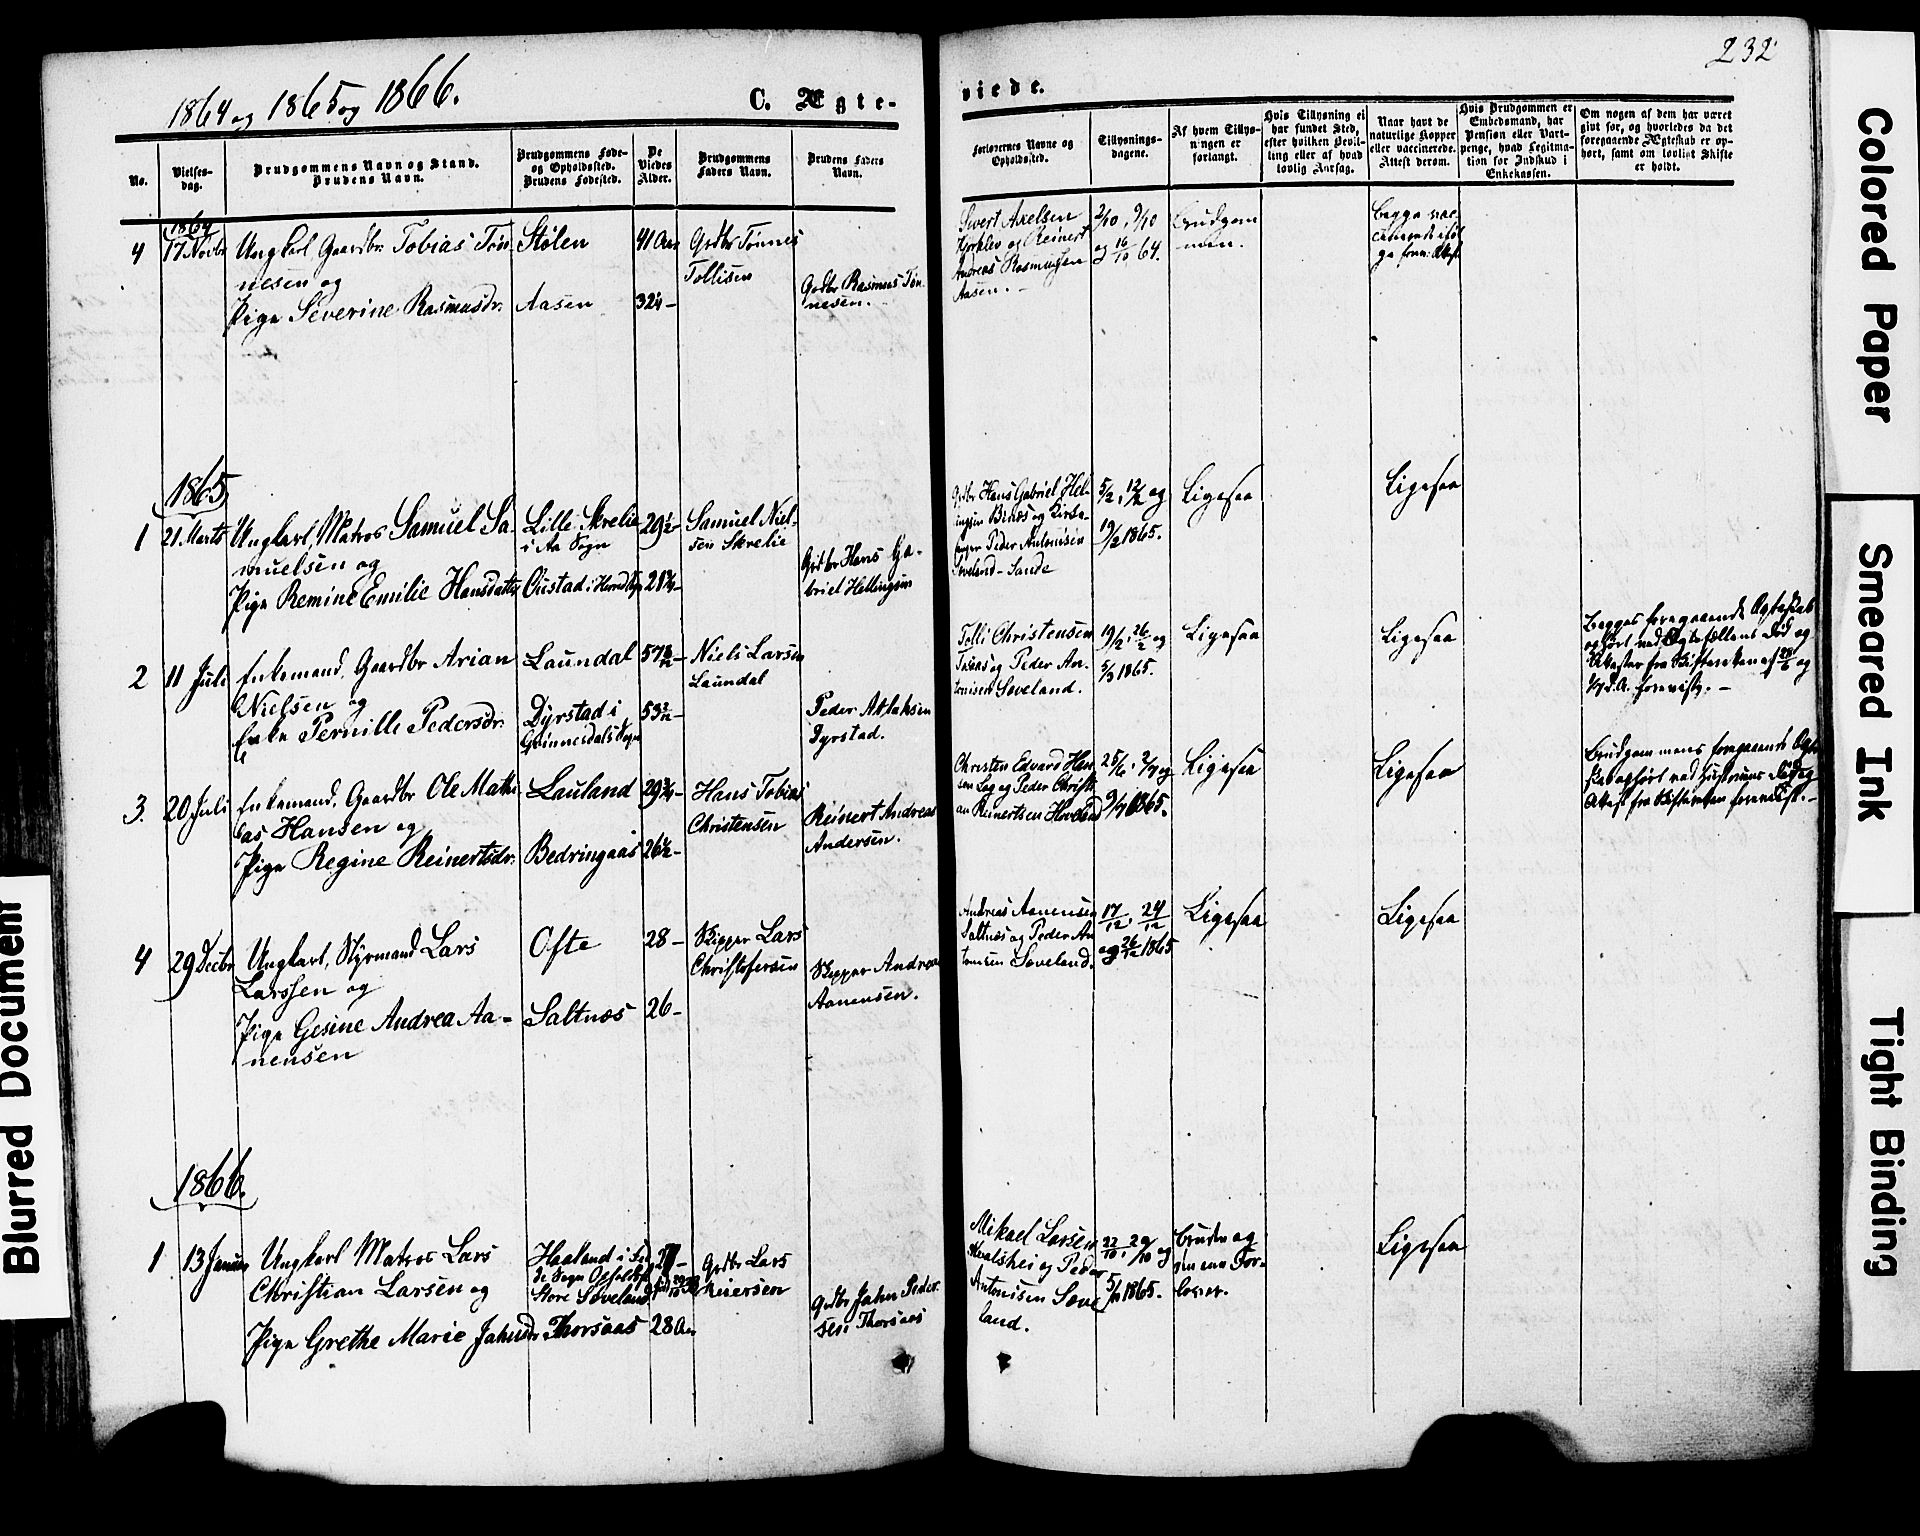 1864 og 1865 og 1866.
C. Ægte-
viede.
232
No.
Vielses-
dag.
Brudgommens Navn og Stand.
Brudens Navn.
Brudgommens Føde-
og Opholdssted.
Brudens Fødested.
De
Viedes
Alder.
Brudgommens
Faders Navn.
Brudens Faders
Navn.
Forlovernes Navne og
Opholdssted.
Tillysnings-
dagene.
Af hvem Tillys-
ningen er
forlangt.
Hvis Tillysning ei
har fundet Sted,
efter hvilken Bevil-
ling eller af hvad
lovlig Aarsag.
Naar havt de
naturlige Kopper
eller vaccinerede.
Attest derom.
Hvis Brudgommen er
Embedsmand, har
Pension eller Vart-
penge, hvad Legitima-
tion for Indskud i
Enkekassen.
Om nogen af dem har været
givt før, og hvorledes da det
foregaaende Ægteskab er op-
hørt, samt om lovligt Skifte
er holdt.
1864
4
17 Novbr
Ungkarl, Gaardbr. Tobias Tøn-
nesen og
Pige Severine Rasmusdr.
Stølen
Aasen
41 Aar
32¼ -
Grdbr Tønnes
Tollisen
Grdbr Rasmus Tøn-
nesen.
Sivert Axelsen
og Reinert
Andreas Rasmussen
Aasen. -
2/10, 9/10
og 16/10 64.
Brudgom
men.
Begge vac-
1865
1
21 Marts
Ungkarl, Matros Samuel Sa-
muelsen og
Pige Remine Emilie Hansdatter
Lille Skrelie
i Aa Sogn
Øiestad i
29½ -
21¾ -
Samuel Niel-
sen Skrelie
Grdbr Hans Ga-
briel Hellingsen
Grdbr Hans Gabriel Hel-
lingsen Binæs og Kirke-
sanger Peder Antonisen
Søveland - Sande
5/2, 12/2 og
19/2 1865.
Ligesaa
Ligesaa
2
11 Juli
Enkemand, Gaardbr Arian
Nielsen og
Enke Pernille Pedersdr.
Laundal
Dyrstad i
Qvinnesdals Sogn
57
53
Niels Larsen
Laundal
Peder Atlaksen
Dyrstad.
Tolli Christensen
og Peder An-
tonisen Søveland.
19/2, 26/2 og
5/3 1865.
Ligesaa
Ligesaa
Begges foregaaende Ægteskab
ophørt ved Ægtefællens Død og
Attester fra Skifteretten af
d. A. foreviste. -
3.
20 Juli
Enkemand, Gaardbr Ole Mathi-
as Hansen og
Pige Regine Reinertsdr.
Lauland
Bedringaas
29¾ -
26½ -
Hans Tobias
Christensen
Reinert Andreas
Andersen.
Christen Edvard Han
sen Log og Peder Christi-
an Reinertsen Hoveland
25/6, 2/7 og
9/7 1865.
Ligesaa
Ligesaa
Brudgommens foregaaende Ægte
skab ophørt ved Hustruens Død og
Attest fra Skifteretten forevist. -
4
29 Decbr
Ungkarl, Styrmand Lars
Larssen og
Pige Gesine Andrea Aa-
nensen
Ofte
Saltnæs
28 -
26 -
Skipper Lars
Christofersen
Skipper Andreas
Aanensen.
Andreas Aanensen
Saltnæs og Peder An
tonisen Søveland.
17/12, 24/12
og 26/12 1865
Ligesaa
Ligesaa
1866.
1
13 Januar
Ungkarl Matros Lars
Christian Larsen og
Pige Grethe Marie Jahnsdr.
Haaland i
Sogn
Store Søveland
Thorsaas
27 -
28 Aar
Grdbr Lars
Reiersen
Grdbr Jahn Peder
sen Thorsaas
Mikael Larsen
og Peder
Antonisen Søve
land.
22/10, 29/10 og
5/11 1865.
Bruden og
den ene For-
lover.
Ligesaa
Blurred Document
Colored Paper
Smeared Ink
Tight Binding